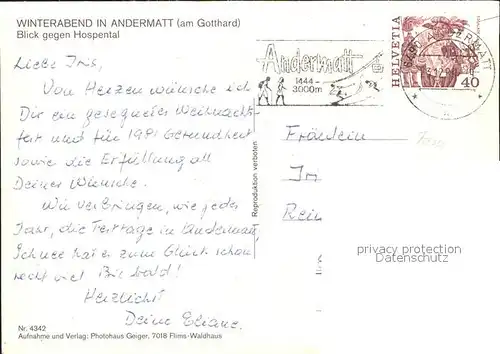 WINTERABEND IN ANDERMATT (am Gotthard)
Blick gegen Hospental
Liebe Iris,
Von Herzen wünsche ich
Dir ein gesegnetes Weihnachts-
fest und für 1981 Gesundheit
sowie die Erfüllung all
Deiner Wünsche.
Wir verbringen, wie jedes
Jahr, die Festtage in Andermatt,
Schnee hat es zum Glück schon
recht viel. Bis bald!
Herzlichst
Deine Eliane.
Nr. 4342
Aufnahme und Verlag: Photohaus Geiger, 7018 Flims-Waldhaus
Reproduktion verboten
Andermatt
1444 -
3000m
HELVETIA
40
6490 ANDERMATT
Fräulein
Ir
Rein
privacy protection
Datenschutz